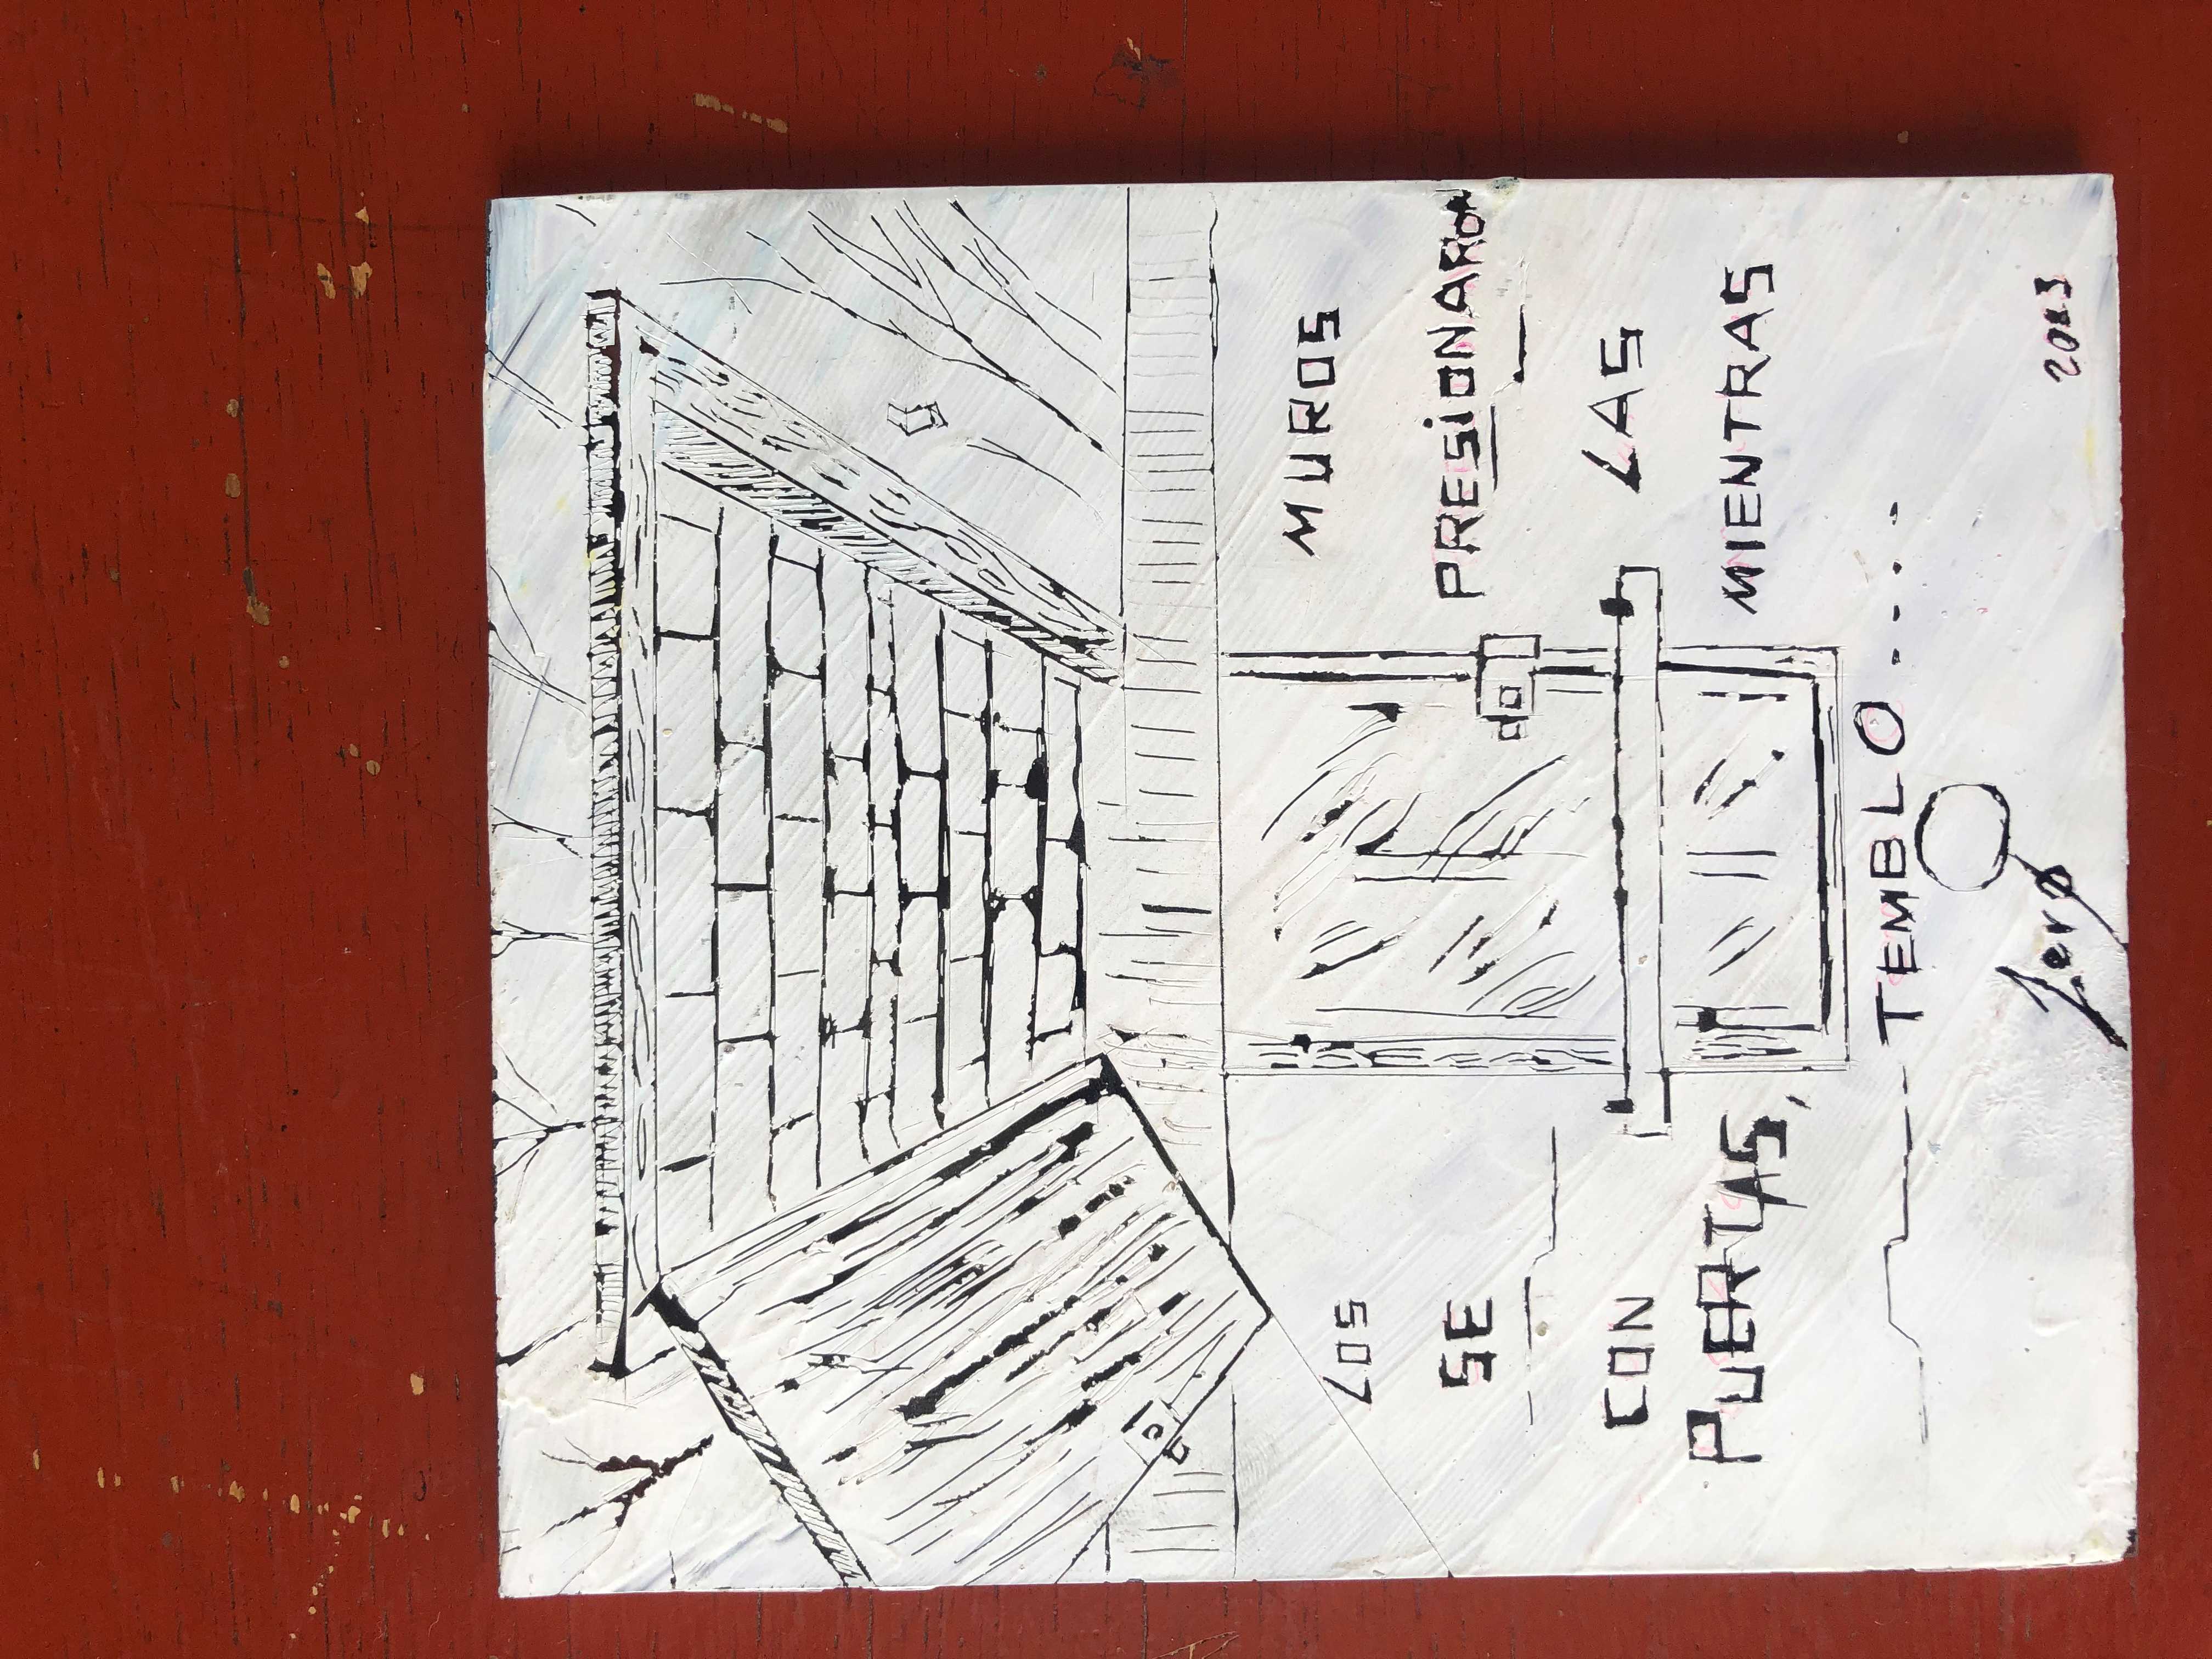 LOS MUROS
SE PRESIONARON
CON LAS
PUERTAS, MIENTRAS
TEMBLO....
Zerø
2023